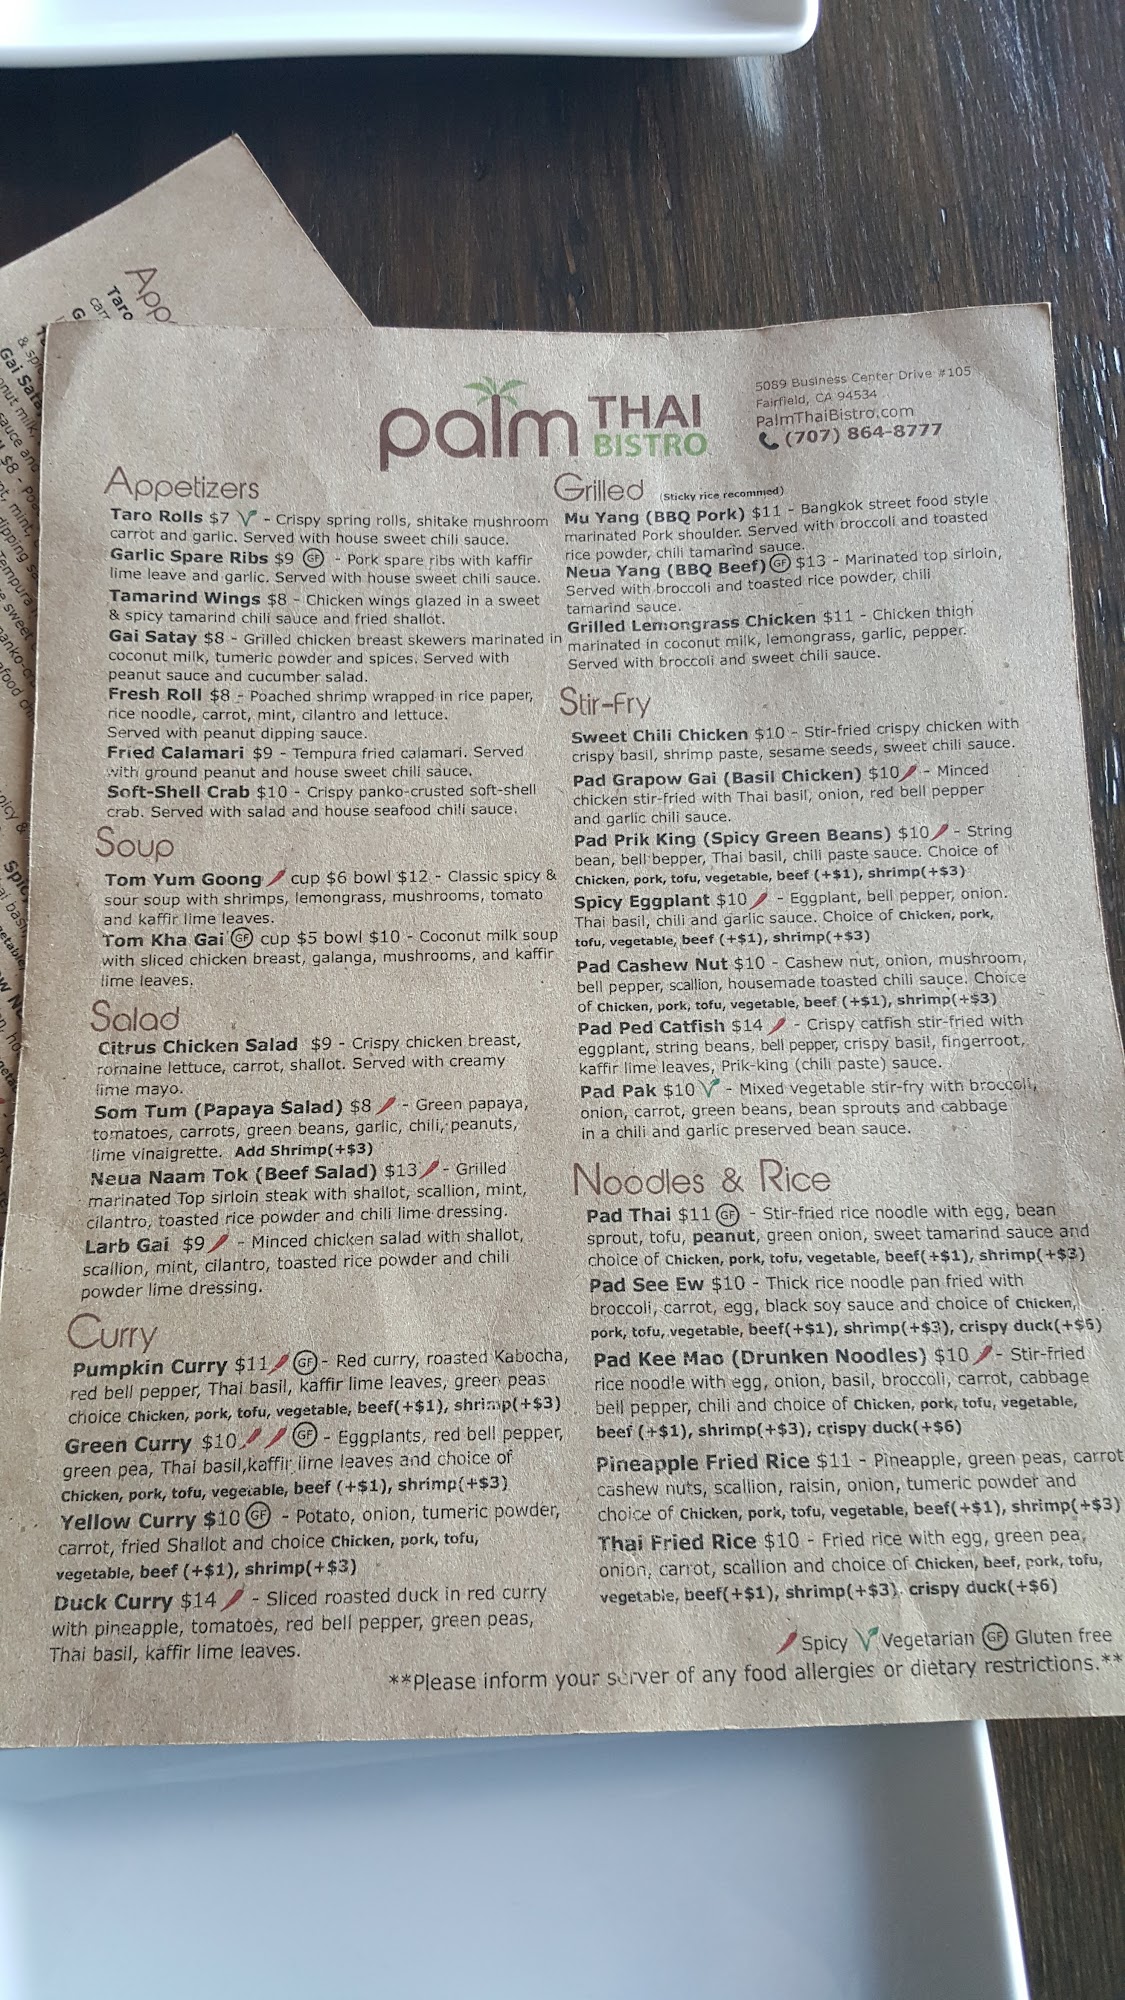 palm THAI
BISTRO
5089 Business Center Drive #105
Fairfield, CA 94534
PalmThaiBistro.com
(707) 864-8777
Appetizers
Taro Rolls $7 - Crispy spring rolls, shitake mushroom
carrot and garlic. Served with house sweet chili sauce.
Garlic Spare Ribs $9 GF - Pork spare ribs with kaffir
lime leave and garlic. Served with house sweet chili sauce.
Tamarind Wings $8 - Chicken wings glazed in a sweet
& spicy tamarind chili sauce and fried shallot.
Gai Satay $8 - Grilled chicken breast skewers marinated in
coconut milk, tumeric powder and spices. Served with
peanut sauce and cucumber salad.
Fresh Roll $8 - Poached shrimp wrapped in rice paper,
rice noodle, carrot, mint, cilantro and lettuce.
Served with peanut dipping sauce.
Fried Calamari $9 - Tempura fried calamari. Served
with ground peanut and house sweet chili sauce.
Soft-Shell Crab $10 - Crispy panko-crusted soft-shell
crab. Served with salad and house seafood chili sauce.
Soup
Tom Yum Goong cup $6 bowl $12 - Classic spicy &
sour soup with shrimps, lemongrass, mushrooms, tomato
and kaffir lime leaves.
Tom Kha Gai GF cup $5 bowl $10 - Coconut milk soup
with sliced chicken breast, galanga, mushrooms, and kaffir
lime leaves.
Salad
Citrus Chicken Salad $9 - Crispy chicken breast,
romaine lettuce, carrot, shallot. Served with creamy
lime mayo.
Som Tum (Papaya Salad) $8 - Green papaya,
tomatoes, carrots, green beans, garlic, chili, peanuts,
lime vinaigrette. Add Shrimp(+$3)
Neua Naam Tok (Beef Salad) $13 - Grilled
marinated Top sirloin steak with shallot, scallion, mint,
cilantro, toasted rice powder and chili lime dressing.
Larb Gai $9 - Minced chicken salad with shallot,
scallion, mint, cilantro, toasted rice powder and chili
powder lime dressing.
Curry
Pumpkin Curry $11 GF - Red curry, roasted Kabocha,
red bell pepper, Thai basil, kaffir lime leaves, green peas
choice Chicken, pork, tofu, vegetable, beef(+$1), shrimp(+$3)
Green Curry $10 GF - Eggplants, red bell pepper,
green pea, Thai basil,kaffir lime leaves and choice of
Chicken, pork, tofu, vegetable, beef (+$1), shrimp(+$3)
Yellow Curry $10 GF - Potato, onion, tumeric powder,
carrot, fried Shallot and choice Chicken, pork, tofu,
vegetable, beef (+$1), shrimp(+$3)
Duck Curry $14 - Sliced roasted duck in red curry
with pineapple, tomatoes, red bell pepper, green peas,
Thai basil, kaffir lime leaves.
Grilled (Sticky rice recommed)
Mu Yang (BBQ Pork) $11 - Bangkok street food style
marinated Pork shoulder. Served with broccoli and toasted
rice powder, chili tamarind sauce.
Neua Yang (BBQ Beef) GF $13 - Marinated top sirloin,
Served with broccoli and toasted rice powder, chili
tamarind sauce.
Grilled Lemongrass Chicken $11 - Chicken thigh
marinated in coconut milk, lemongrass, garlic, pepper.
Served with broccoli and sweet chili sauce.
Stir-Fry
Sweet Chili Chicken $10 - Stir-fried crispy chicken with
crispy basil, shrimp paste, sesame seeds, sweet chili sauce.
Pad Grapow Gai (Basil Chicken) $10 - Minced
chicken stir-fried with Thai basil, onion, red bell pepper
and garlic chili sauce.
Pad Prik King (Spicy Green Beans) $10 - String
bean, bell bepper, Thai basil, chili paste sauce. Choice of
Chicken, pork, tofu, vegetable, beef (+$1), shrimp(+$3)
Spicy Eggplant $10 - Eggplant, bell pepper, onion.
Thai basil, chili and garlic sauce. Choice of Chicken, pork,
tofu, vegetable, beef (+$1), shrimp(+$3)
Pad Cashew Nut $10 - Cashew nut, onion, mushroom,
bell pepper, scallion, housemade toasted chili sauce. Choice
of Chicken, pork, tofu, vegetable, beef (+$1), shrimp(+$3)
Pad Ped Catfish $14 - Crispy catfish stir-fried with
eggplant, string beans, bell pepper, crispy basil, fingerroot,
kaffir lime leaves, Prik-king (chili paste) sauce.
Pad Pak $10 - Mixed vegetable stir-fry with broccoli,
onion, carrot, green beans, bean sprouts and cabbage
in a chili and garlic preserved bean sauce.
Noodles & Rice
Pad Thai $11 GF - Stir-fried rice noodle with egg, bean
sprout, tofu, peanut, green onion, sweet tamarind sauce and
choice of Chicken, pork, tofu, vegetable, beef(+$1), shrimp(+$3)
Pad See Ew $10 - Thick rice noodle pan fried with
broccoli, carrot, egg, black soy sauce and choice of Chicken,
pork, tofu, vegetable, beef(+$1), shrimp(+$3), crispy duck(+$6)
Pad Kee Mao (Drunken Noodles) $10 - Stir-fried
rice noodle with egg, onion, basil, broccoli, carrot, cabbage
bell pepper, chili and choice of Chicken, pork, tofu, vegetable,
beef (+$1), shrimp(+$3), crispy duck(+$6)
Pineapple Fried Rice $11 - Pineapple, green peas, carrot
cashew nuts, scallion, raisin, onion, tumeric powder and
choice of Chicken, pork, tofu, vegetable, beef(+$1), shrimp(+$3)
Thai Fried Rice $10 - Fried rice with egg, green pea,
onion, carrot, scallion and choice of Chicken, beef, pork, tofu,
vegetable, beef(+$1), shrimp(+$3), crispy duck(+$6)
Spicy Vegetarian GF Gluten free
**Please inform your server of any food allergies or dietary restrictions.**